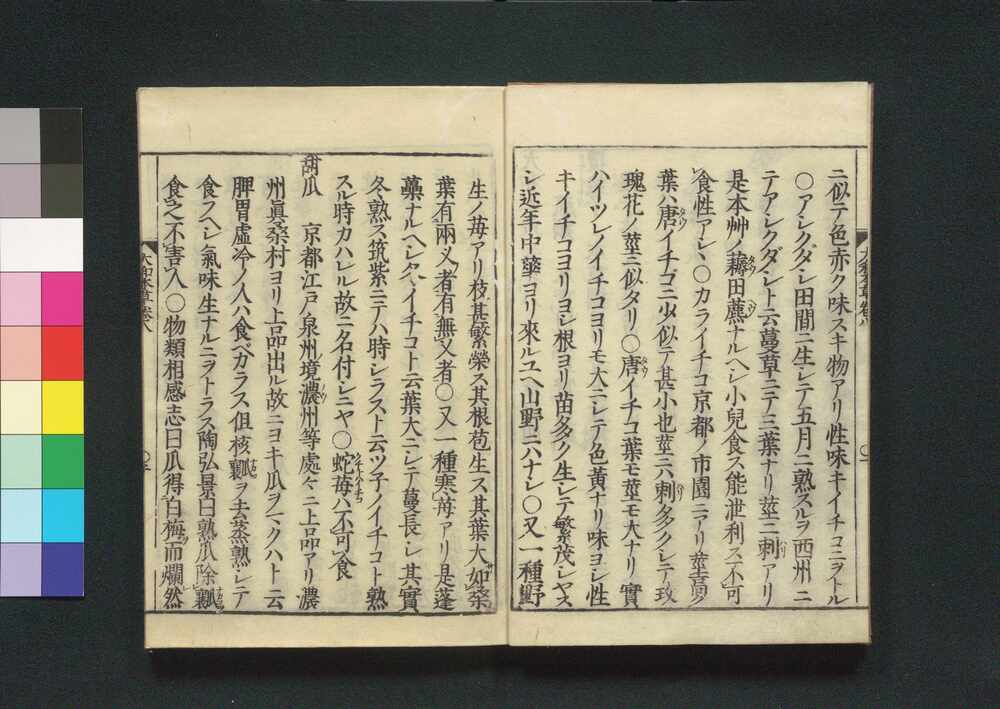 ニ似テ色赤ク味スキ物アリ性味キイチコニヲトル
○アシクダシ田間ニ生シテ五月ニ熟スルヲ西州ニ
テアシクダシト云蔓草ニテ三葉ナリ莖ニ刺アリ
是本艸ノ藨田藨ナルヘシ小兒食ス能泄利ス不可
食性アシヽ○カライチコ京都ノ市園ニアリ莖
葉ハ唐イチゴニ少似テ甚小也莖ニハ刺多クシテ玫
瑰花ノ莖ニ似タリ○唐イチコ葉モ莖モ大ナリ實
ハイツレノイチコヨリモ大ニシテ色黄ナリ味ヨシ性
キイチコヨリヨシ根ヨリ苗多ク生シテ繁茂シヤス
シ近年中華ヨリ來ルユヘ山野ニハナシ○又一種野
生ノ苺アリ枝甚繁榮ス其根苞生ス其葉大如桑
葉有兩乂者有無乂者○又一種寒苺アリ是蓬
藟ナルヘシ久イチコト云葉大ニシテ蔓長シ其實
冬熟ス筑紫ニテハ時シラスト云ツ子ノイチコト熟
スル時カハレル故ニ名付シニヤ○蛇苺ハ不可食
甜瓜 京都江戸泉州境濃州等處々ニ上品アリ濃
州眞桑村ヨリ上品出ル故ニヨキ瓜ヲマクハト云
脾胃虚冷ノ人ハ食ベカラス但核瓤ヲ去蒸熟シテ
食フヘシ氣味生ナルニヲトラス陶弘景曰熟瓜除瓤
食之不害人○物類相感志曰瓜得白梅而爛然
大和本草卷八